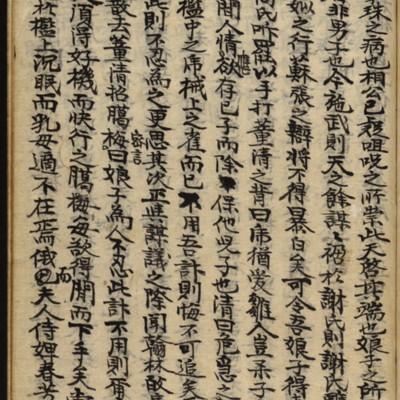 珠之病也相公已疑咀呪之所祟此天啓其端也娘子之所
非男子也今施武則天之餘謀禍於謝氏則謝氏雖
姒之行蘇張之辯將不得暴白矣可令吾娘子得
氏听罷以手打董清之背曰虎猶愛雛人豈
聞人情欲存己子而除保他兒子也清曰危急之
檻中之虎械上之雀而已不用吾計則悔不可追矣
此則不忍為之更思其次正謀議之際聞翰林
散去董清招臘梅密言曰娘子為人不忍此計不用則
須得好機而快行之臘梅每欲得間而下手矣
枕檻上沉眠而乳母適不在焉俄而夫人侍婢春芳